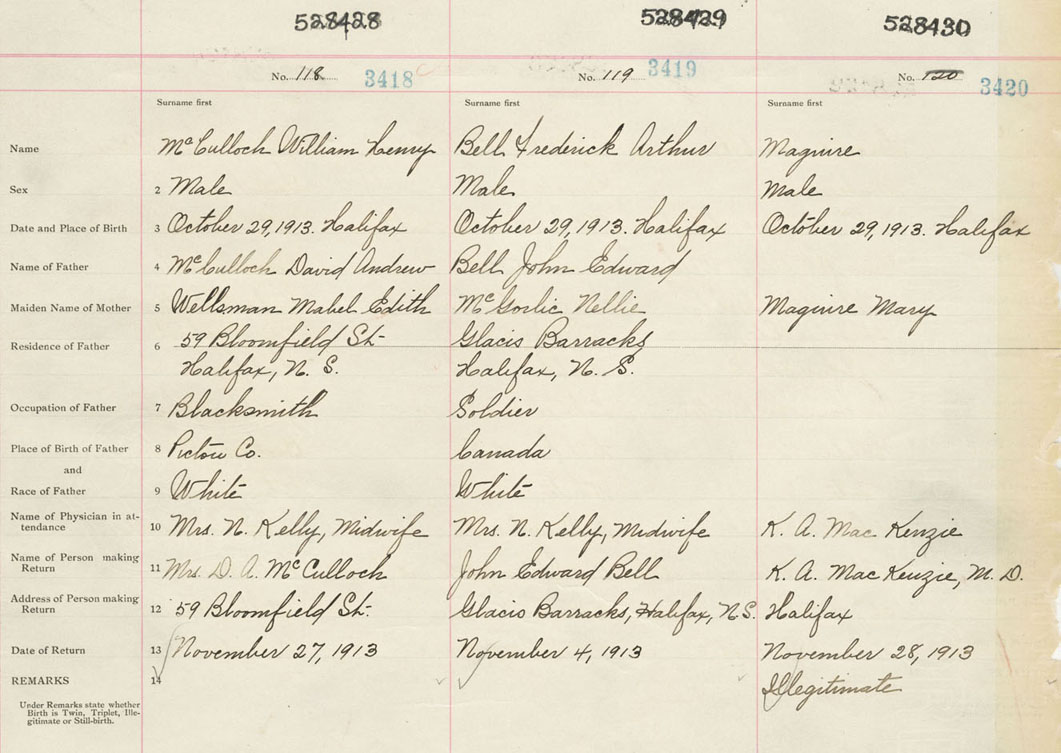 528428 528429 528430
No. 118 3418 No. 119 3419 No. 120 3420
Surname first Surname first Surname first
Name McCulloch William Henry Bell Frederick Arthur Maguire
Sex 2 Male Male Male
Date and Place of Birth 3 October 29, 1913. Halifax October 29, 1913. Halifax October 29, 1913. Halifax
Name of Father 4 McCulloch David Andrew Bell John Edward
Maiden Name of Mother 5 Wellsman Mabel Edith McGorlic Nellie Maguire Mary
Residence of Father 6 59 Bloomfield St- Glacis Barracks
Halifax, N. S. Halifax, N. S.
Occupation of Father 7 Blacksmith Soldier
Place of Birth of Father 8 Pictou Co. Canada
and
Race of Father 9 White White
Name of Physician in at-
tendance 10 Mrs. N. Kelly, Midwife Mrs. N. Kelly, Midwife K. A. Mac Kenzie
Name of Person making
Return 11 Mrs. D. A. McCulloch John Edward Bell K. A. Mac Kenzie, M. D.
Address of Person making
Return 12 59 Bloomfield St. Glacis Barracks, Halifax, N.S. Halifax
Date of Return 13 November 27, 1913 November 4, 1913 November 28, 1913
REMARKS 14 Illegitimate
Under Remarks state whether
Birth is Twin, Triplet, Ille-
gitimate or Still-birth.